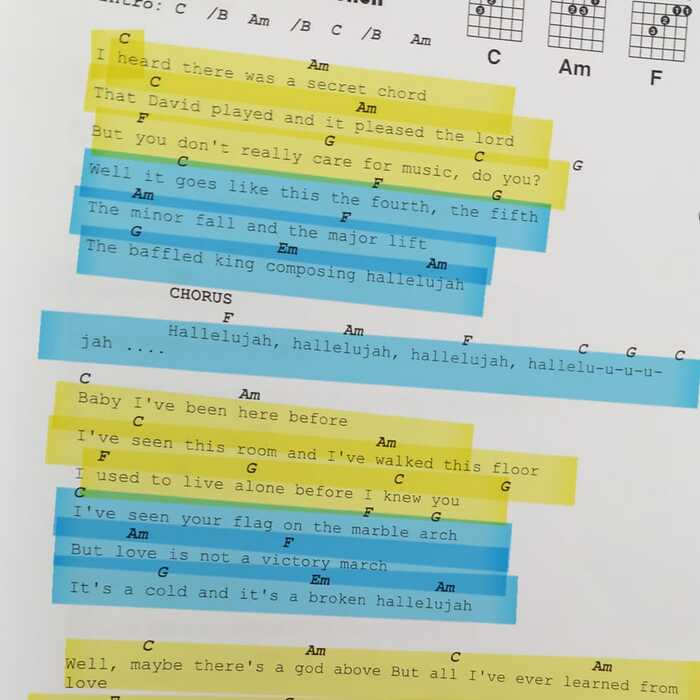 Intro: C /B Am /B C /B Am
C Am F
C Am
I heard there was a secret chord
C Am
That David played and it pleased the lord
F G C G
But you don't really care for music, do you?
C F G
Well it goes like this the fourth, the fifth
Am F
The minor fall and the major lift
G Em Am
The baffled king composing hallelujah
CHORUS
F Am F C G C
Hallelujah, hallelujah, hallelujah, hallelu-u-u-u-
jah ....
C Am
Baby I've been here before
C Am
I've seen this room and I've walked this floor
F G C G
I used to live alone before I knew you
C F G
I've seen your flag on the marble arch
Am F
But love is not a victory march
G Em Am
It's a cold and it's a broken hallelujah
C Am C Am
Well, maybe there's a god above But all I've ever learned from
love